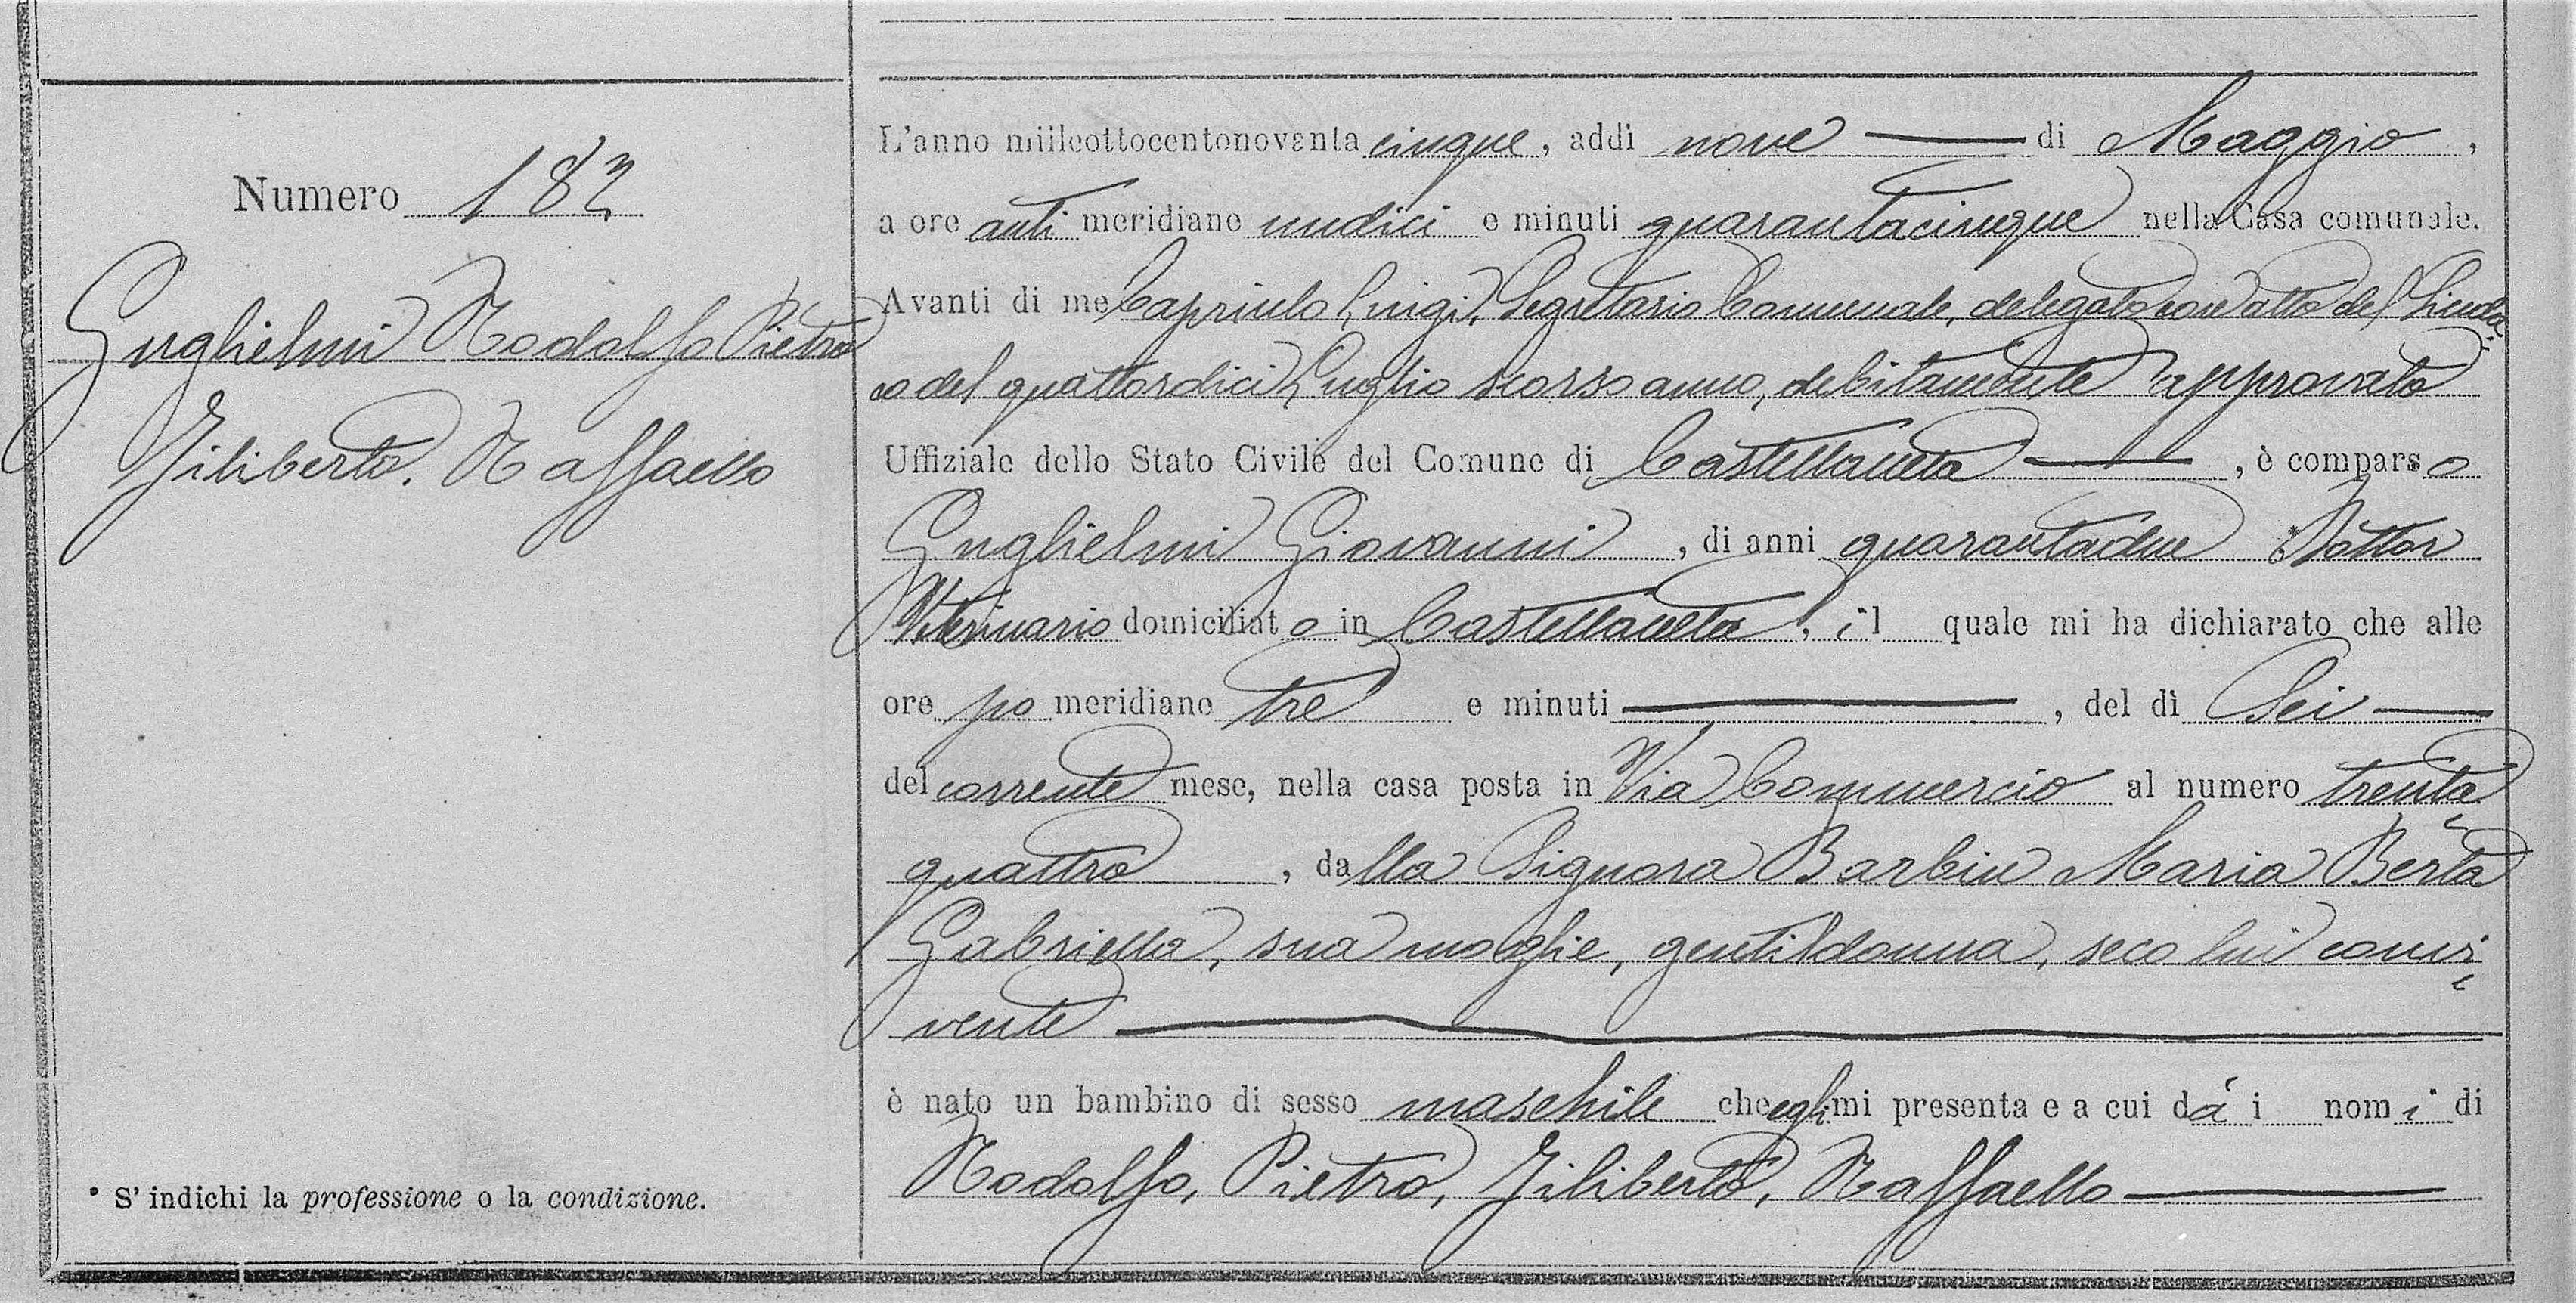 Numero 182
Guglielmi Rodolfo Pietro
Filiberto. Raffaello
* S' indichi la professione o la condizione.
L'anno milleottocentonovanta cinque, addì nove — di Maggio,
a ore anti meridiane undici e minuti quarantacinque nella Casa comunale.
Avanti di me Capriulo Luigi, Segretario Comunale, delegato con atto del Sinda-
co del quattordici Luglio scorso anno, debitamente approvato
Uffiziale dello Stato Civile del Comune di Castellaneta —, è comparso
Guglielmi Giovanni, di anni quarantadue *Dottor
Veterinario domiciliato in Castellaneta, il quale mi ha dichiarato che alle
ore po meridiane tre e minuti —, del dì Sei —
del corrente mese, nella casa posta in Via Commercio al numero trenta-
quattro, dalla Signora Barbin Maria Berta
Gabriella, sua moglie, gentildonna, seco lui convi-
vente —
è nato un bambino di sesso maschile che egli mi presenta e a cui dà i nomi di
Rodolfo, Pietro, Filiberto, Raffaello —